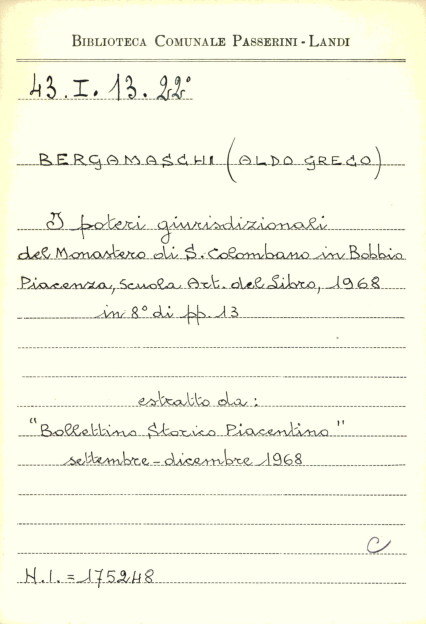 BIBLIOTECA COMUNALE PASSERINI - LANDI
43. I. 13. 22°
BERGAMASCHI (ALDO GRECO)
I poteri giurisdizionali
del Monastero di S. Colombano in Bobbio
Piacenza, Scuola Art. del Libro, 1968
in 8° di pp. 13
estratto da:
"Bollettino Storico Piacentino"
settembre - dicembre 1968
C
N.I. = 175248